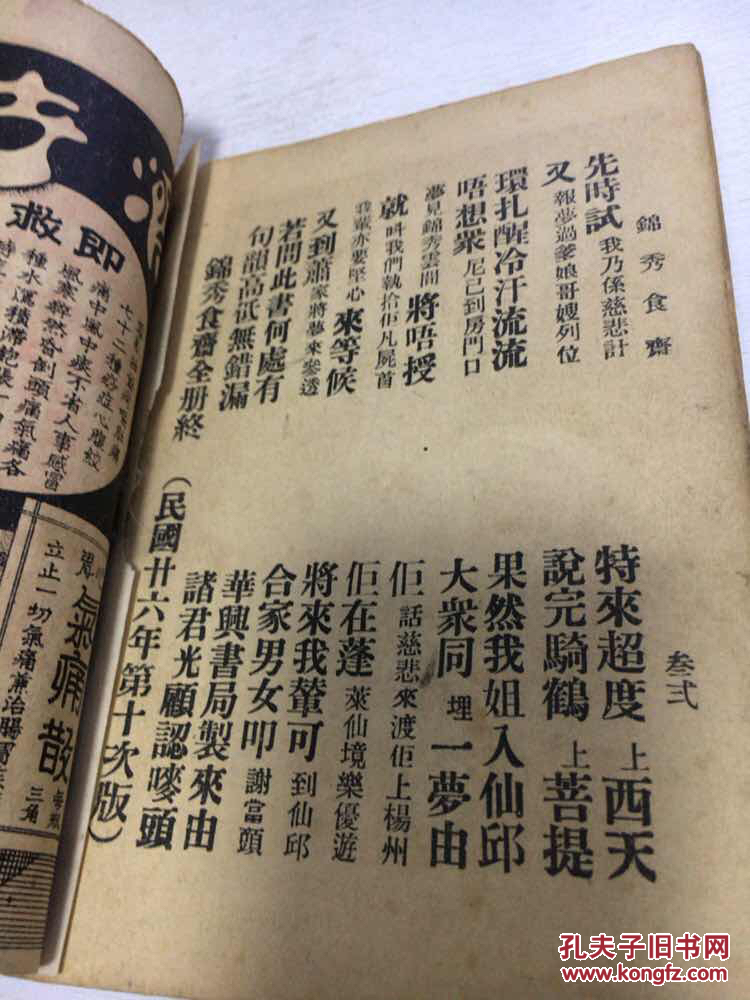 錦秀食齋
叁弍
先時試我乃係慈悲計
特來超度上西天
又報夢過爹娘哥嫂列位
說完騎鶴上菩提
環扎醒冷汗流流
果然我姐入仙邱
唔想衆尼已到房門口
大衆同埋一夢由
夢見錦秀雲間將唔授
佢話慈悲來渡佢上楊州
就呌我們執拾佢凡屍首
佢在蓬萊仙境樂優遊
我輩亦要堅心來等候
將來我輩可到仙邱
又到蕭家將夢來參透
合家男女叩謝當頭
若問此書何處有
華興書局製來由
句韻高低無錯漏
諸君光顧認嘜頭
錦秀食齋全册終
(民國廿六年第十次版)
即救
痛中風中痰不省人事感冒
氣痛散
每瓶
三角
立止一切氣痛兼治腸胃
孔夫子旧书网
www.kongfz.com